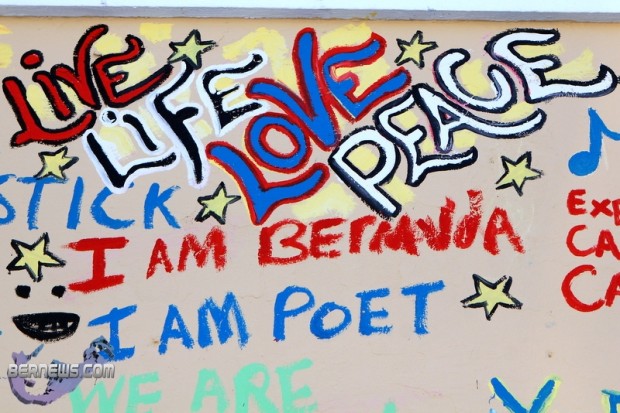 LIVE LIFE LOVE PEACE
STICK
I AM BERMUDA
EXP
CA
CA
I AM POET
BERNEWS.COM
WE ARE